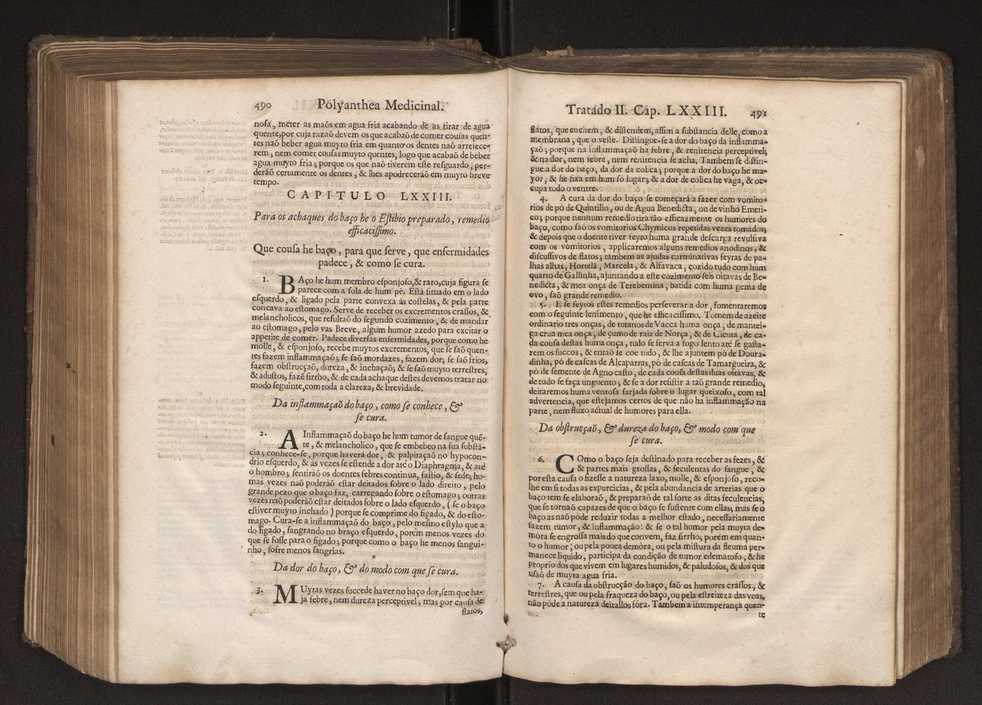 490 Polyanthea Medicinal.
nosa, meter as maõs em agua fria acabando de as tirar de agua
quente, por cuja razaõ devem os que acabaõ de comer cousas quen-
tes naõ beber agua muyto fria em quanto os dentes naõ arrefece-
rem, nem comer cousas muyto quentes, logo que acabaõ de beber
agua muyto fria; porque os que naõ tiverem este resguardo, per-
deràõ certamente os dentes, & lhes apodreceràõ em muyto breve
tempo.
CAPITULO LXXIII.
Para os achaques do baço he o Estibio preparado, remedio
efficacissimo.
Que cousa he baço, para que serve, que enfermidades
padece, & como se cura.
1. BAço he hum membro esponjoso, & raro, cuja figura se
parece com a sola de hum pè. Està situado em o lado
esquerdo, & ligado pela parte convexa às costelas, & pela parte
concava ao estomago. Serve de receber os excrementos crassos, &
melancholicos, que resultaõ do segundo cozimento, & de mandar
ao estomago, pelo vas Breve, algum humor azedo para excitar o
appetite de comer. Padece diversas enfermidades, porque como he
molle, & esponjoso, recebe muytos excrementos, que se saõ quen-
tes fazem inflammaçaõ; se saõ mordazes, fazem dor; se saõ frios,
fazem obstrucçaõ, dureza, & inchaçaõ; & se saõ muyto terrestres,
& adustos, fazẽ sirrho, & de cada achaque destes devemos tratar no
modo seguinte, com toda a clareza, & brevidade.
Da inflammaçaõ do baço, como se conhece, &
se cura.
2. AInflammaçaõ do baço he hum tumor de sangue quẽ-
te, & melancholico, que se embebeo na sua substã-
cia; conhece-se, porque haverà dor, & palpitaçaõ no hypocon-
drio esquerdo, & às vezes se estende a dor atè o Diaphragma, & atè
o hombro; sentiràõ os doentes febres continua, fastio, & sede; ho-
mas vezes naõ poderàõ estar deitados sobre o lado direito, pelo
grande pezo que o baço faz, carregando sobre o estomago; outras
vezes naõ poderàõ estar deitados sobre o lado esquerdo, (se o baço
estiver muyto inchado) porque se comprime do figado, & do esto-
mago. Cura-se a inflammaçaõ do baço, pelo mesmo estylo que a
do figado, sangrando no braço esquerdo, porèm menos vezes do
que se fosse para o figado; porque como o baço he menos sangui-
nho, sofre menos sangrias.
Da dor do baço, & do modo com que se cura.
3. MUytas vezes succede haver no baço dor, sem que ha-
ja febre, nem dureza perceptivel, mas por causa de
flatos,
Tratado II. Cap. LXXIII. 491
flatos, que enchem, & distendem, assim a substancia delle, como a
membrana, que o veste. Distingue-se a dor do baço da inflamma-
çaõ; porque na inflammaçaõ ha febre, & renitencia perceptivel;
& na dor, nem febre, nem renitencia se acha. Tambem se distin-
gue a dor do baço, da dor da colica; porque a dor do baço he ma-
yor, & he fixa em hum só lugar; & a dor de colica he vaga, & oc-
cupa todo o ventre.
4. A cura da dor do baço se começarà a fazer com vomito-
rios de pò de Quintilio, ou de Agua Benedicta, ou de vinho Emeti-
co; porque nenhum remedio tira tão efficazmente os humores do
baço, como saõ os vomitorios Chymicos repetidas vezes tomados;
& depois que o doente tiver feyto huma grande descarga revulsiva
com os vomitorios, applicaremos alguns remedios anodinos, &
discussivos de flatos; tambem as ajudas carminativas feytas de pa-
lhas alhas, Hortelã, Marcela, & Alfavaca, cozido tudo com hum
quarto de Gallinha, ajuntando a este cozimento seis oitavas de Be-
nedicta, & mea onça de Terebentina, batida com huma gema de
ovo, saõ grande remedio.
5. E se feytos estes remedios perseverar a dor, fomentaremos
com o seguinte lenimento, que he efficacissimo. Tomem de azeite
ordinario tres onças, de tutanos de Vacca huma onça, de mantei-
ga crua mea onça, de çumo de raiz de Norça, & de Cicuta, de ca-
da cousa destas huma onça, tudo se ferva a fogo lento atè se gasta-
rem os succos, & entaõ se coe tudo, & lhe ajuntem pò de Doura-
dinha, pò de cascas de Alcaparras, pò de cascas de Tamargueira, &
pò de semente de Agno casto, de cada cousa destas duas oitavas, &
de tudo se faça unguento, & se a dor resistir a taõ grande remedio,
deitaremos huma ventosa sarjada sobre o lugar queixoso, com tal
advertencia, que estejamos certos de que naõ ha inflammaçaõ na
parte, nem fluxo actual de humores para ella.
Da obstrucçaõ, & dureza do baço, & modo com que
se cura.
6. COmo o baço seja destinado para receber as fezes, &
& partes mais grossas, & feculentas do sangue, &
por esta causa o fizesse a natureza laxo, molle, & esponjoso, reco-
lhe em si todas as espurcicias, & pela abundancia de arterias que o
baço tem se elaboraõ, & preparaõ de tal sorte as ditas feculencias,
que se tornaõ capazes de que o baço se sustente com ellas, mas se o
baço as naõ pòde reduzir todas a melhor estado, necessariamente
fazem tumor, & inflammaçaõ: & se o tal humor pela muyta de-
mora se engrossa mais do que convem, faz sirrho; porèm em quan-
to o humor; ou pela pouca demora, ou pela mistura da fleuma per-
manece liquido, participa da condiçaõ de tumor edematoso, & he
proprio dos que vivem em lugares humidos, & paludosos, & dos que
usaõ de muyta agua fria.
7. A causa da obstrucçaõ do baço, saõ os humores crassos, &
terrestres, que ou pela fraqueza do baço, ou pela estreiteza das veas,
naõ pòde a natureza deitallos fóra. Tambem a intemperança quen-
te